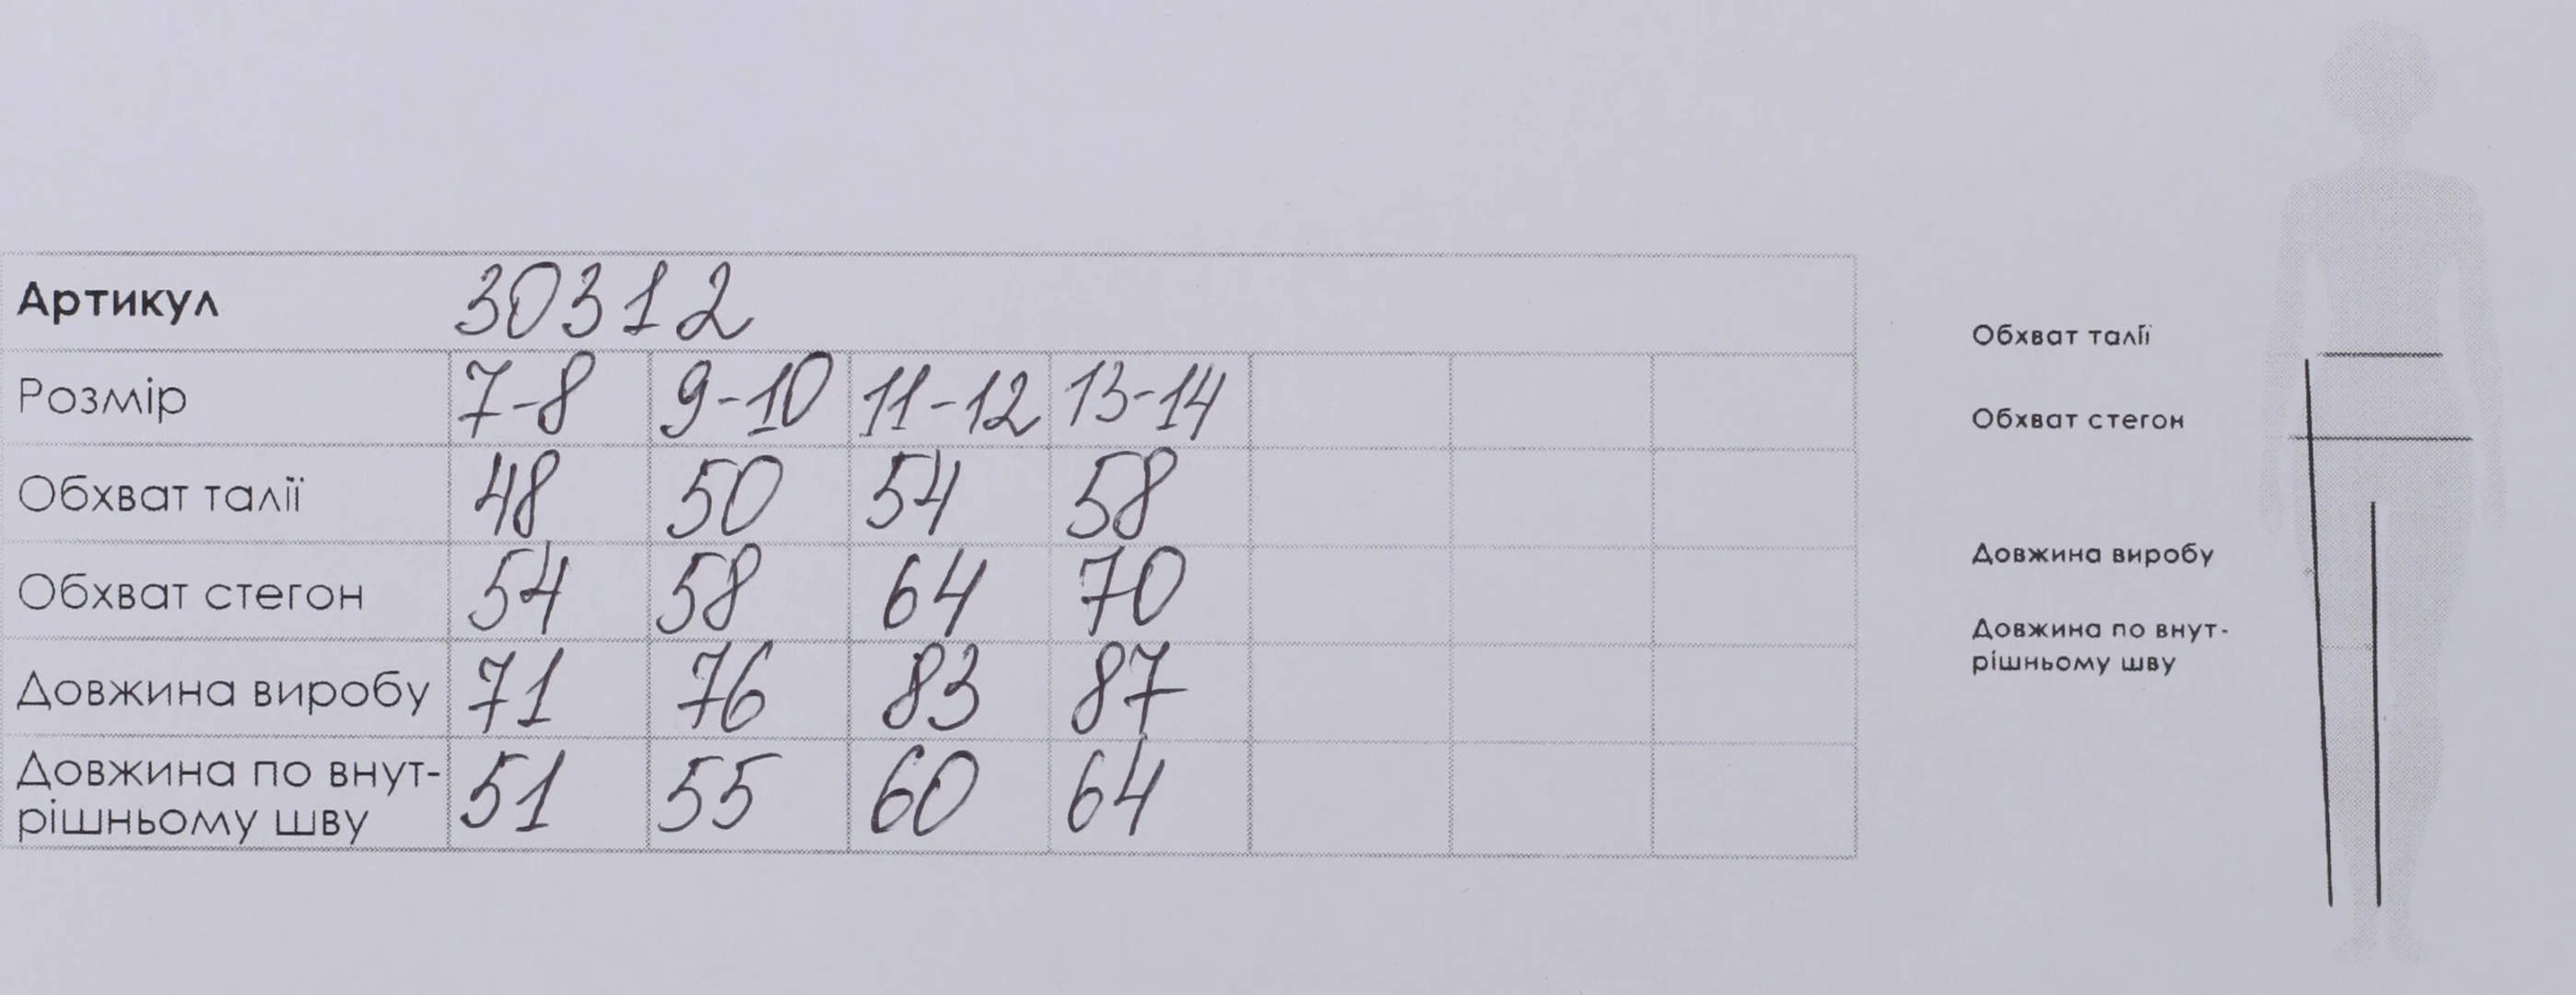 Артикул 30312
Розмір 7-8 9-10 11-12 13-14
Обхват талії 48 50 54 58
Обхват стегон 54 58 64 70
Довжина виробу 71 76 83 87
Довжина по внут-
рішньому шву 51 55 60 64
Обхват талії
Обхват стегон
Довжина виробу
Довжина по внут-
рішньому шву